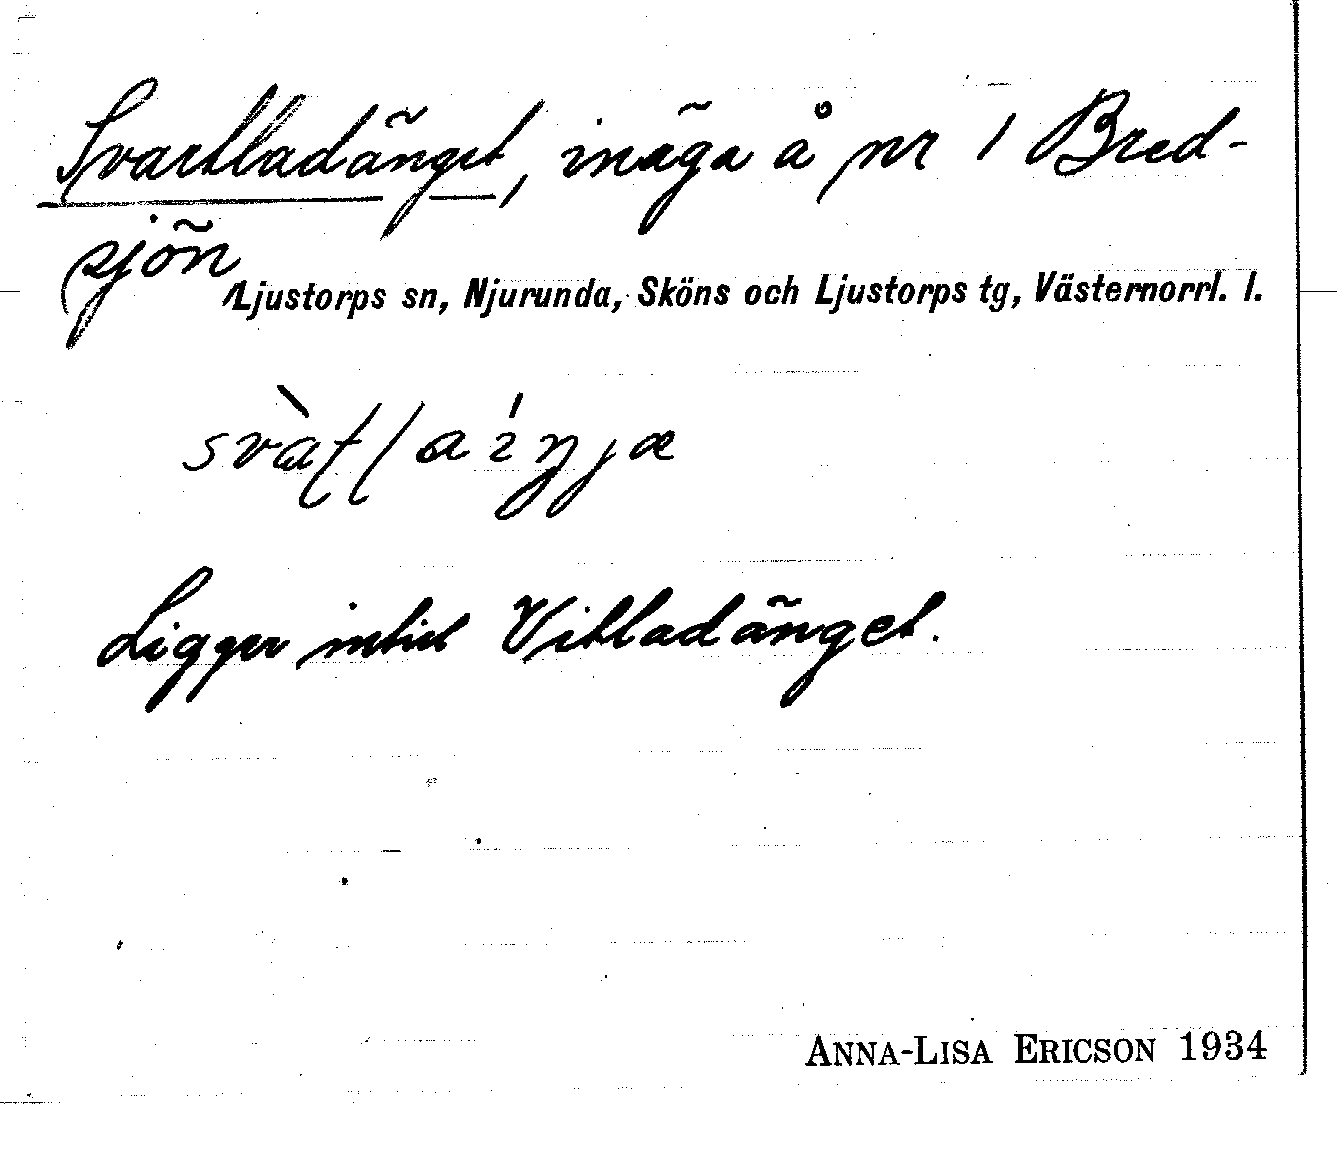 Svartladänget, inäga å nr 1 Bred-
sjön
Ljustorps sn, Njurunda, Sköns och Ljustorps tg, Västernorrl. l.
Ligger intill Vitladänget.
ANNA-LISA ERICSON 1934